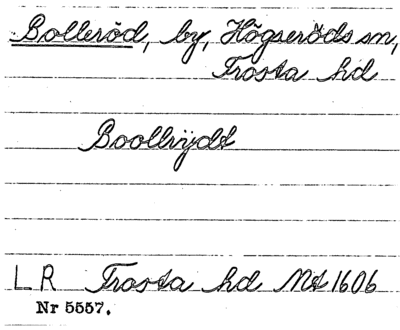 Bolleröd, by, Högseröds sn,
Frosta hd
Boollrÿdt
LR Frosta hd Mt 1606
Nr 5557.